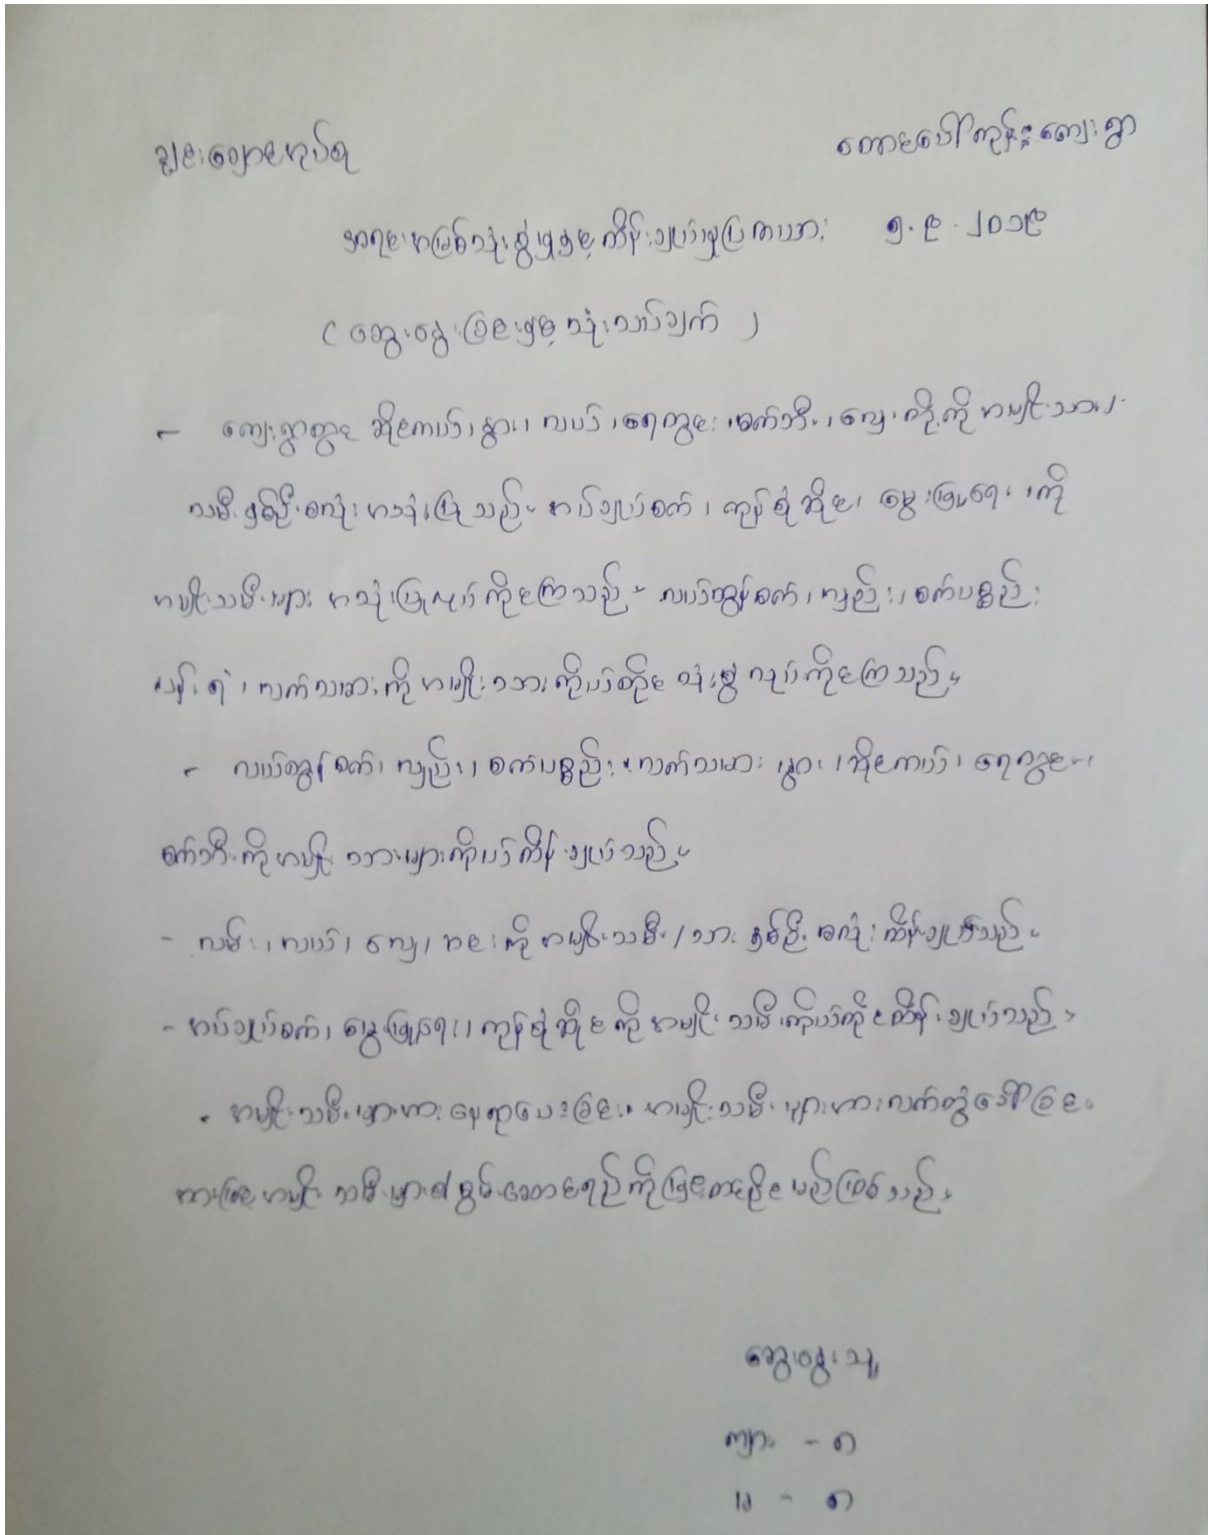 ချင်းချောင်အုပ်စု တောင်ပေါ်ကုန်းကျေးရွာ
အရင်းအမြစ်သုံးစွဲမှုနှင့် ထိန်းချုပ်မှုပြကားယား ၅.၉.၂၀၁၉
( ဆွေးနွေးခြင်းနှင့် သုံးသပ်ချက် )
- ကျေးရွာတွင် ဆိုင်ကယ်၊ နွား၊ လယ်၊ ရေတွင်း၊ စက်ဘီး၊ လှေ၊ တို့ကို အမျိုးသား၊
သမီး နှစ်ဦးစလုံး အသုံးပြုသည်။ အပ်ချုပ်စက်၊ ကုန်စုံဆိုင်၊ မွေးမြူရေး၊ ကို
အမျိုးသမီးများ အသုံးပြုလုပ်ကိုင်ကြသည်။ လယ်ထွန်စက်၊ လှည်း၊ စက်ပစ္စည်း
ပန်းရံ၊ လက်သမားကို အမျိုးသားကိုယ်တိုင် သုံးစွဲလုပ်ကိုင်ကြသည်။
- လယ်ထွန်စက်၊ လှည်း၊ စက်ပစ္စည်း၊ လက်သမား၊ နွား၊ ဆိုင်ကယ်၊ ရေတွင်း၊
စက်ဘီးကို အမျိုးသားများကိုယ်ထိန်းချုပ်သည်။
- လမ်း၊ လယ်၊ လှေ၊ အင်းကို အမျိုးသမီး/သား နှစ်ဦးစလုံး ထိန်းချုပ်သည်။
- အပ်ချုပ်စက်၊ မွေးမြူရေး၊ ကုန်စုံဆိုင်ကို အမျိုးသမီးကိုယ်တိုင်ထိန်းချုပ်သည်။
- အမျိုးသမီးများအား နေရာပေးခြင်း၊ အမျိုးသမီးများအား လက်တွဲခေါ်ခြင်း
အားဖြင့် အမျိုးသမီးများ၏ စွမ်းဆောင်ရည်ကိုမြှင့်တင်နိုင်မည်ဖြစ်သည်။
ဆွေးနွေးသူ
ကျား - ၈
မ - ၈